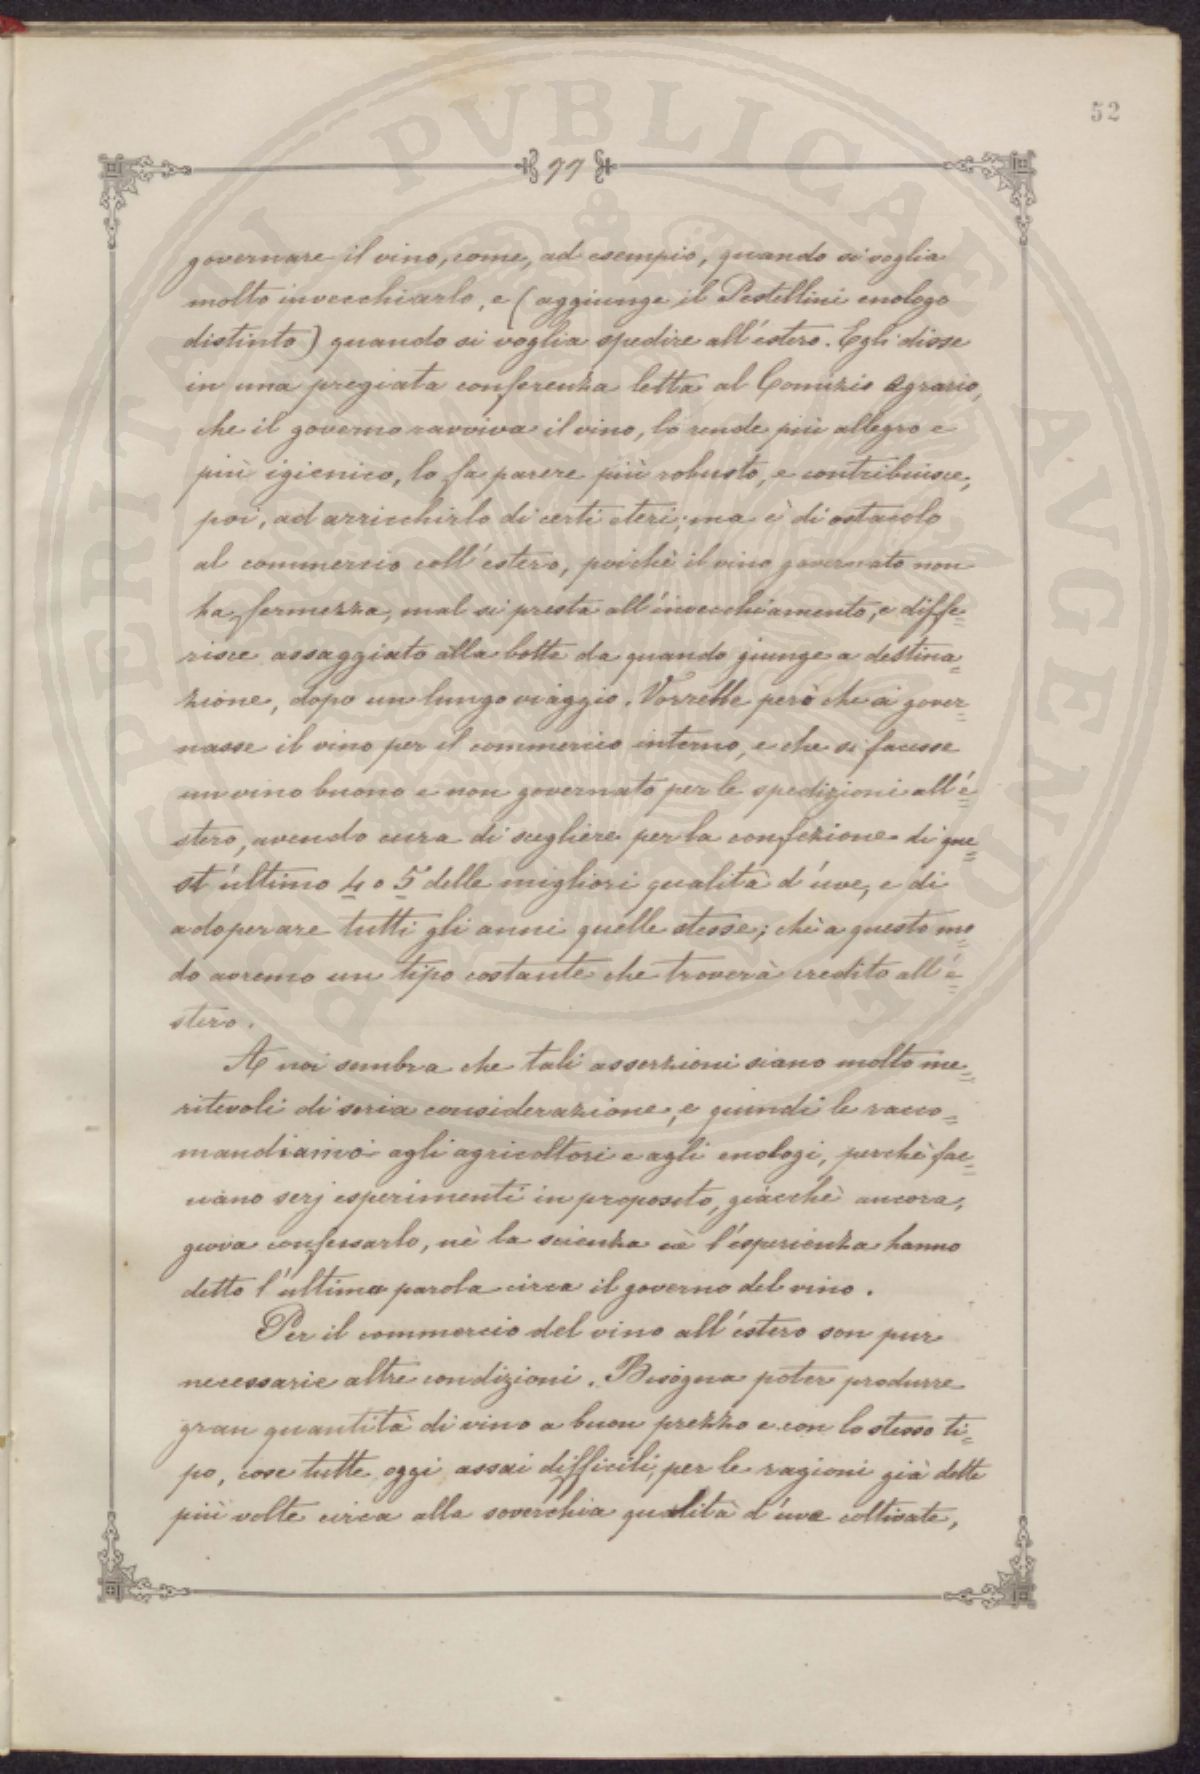 52
99
governare il vino, come, ad esempio, quando si voglia
molto invecchiarlo, e (aggiunge il Pestellini enologo
distinto) quando si voglia spedire all'estero. Egli disse
in una pregiata conferenza letta al Comizio Agrario,
che il governo ravviva il vino, lo rende più allegro e
più igienico, lo fa parere più robusto, e contribuisce,
poi, ad arricchirlo di certi eteri; ma è di ostacolo
al commercio coll'estero, poichè il vino governato non
ha fermezza, mal si presta all'invecchiamento, e diffe=
risce assaggiato alla botte da quando giunge a destina=
zione, dopo un lungo viaggio. Vorrebbe però che si gover=
nasse il vino per il commercio interno, e che si facesse
un vino buono e non governato per le spedizioni all'e=
stero, avendo cura di scegliere per la confezione di que=
st'ultimo 4 o 5 delle migliori qualità d'uve, e di
adoperare tutti gli anni quelle stesse; chè a questo mo=
do avremo un tipo costante che troverà credito all'e=
stero.
A noi sembra che tali asserzioni siano molto me=
ritevoli di seria considerazione, e quindi le racco=
mandiamo agli agricoltori e agli enologi, perchè fac=
ciano serj esperimenti in proposito, giacchè ancora,
giova confessarlo, nè la scienza nè l'esperienza hanno
detto l'ultima parola circa il governo del vino.
Per il commercio del vino all'estero son pur
necessarie altre condizioni. Bisogna poter produrre
gran quantità di vino a buon prezzo e con lo stesso ti=
po, cose tutte oggi assai difficili, per le ragioni già dette
più volte circa alla soverchia qualità d'uve coltivate,
PUBLICAE
AUGENDAE
PROSPERITATI